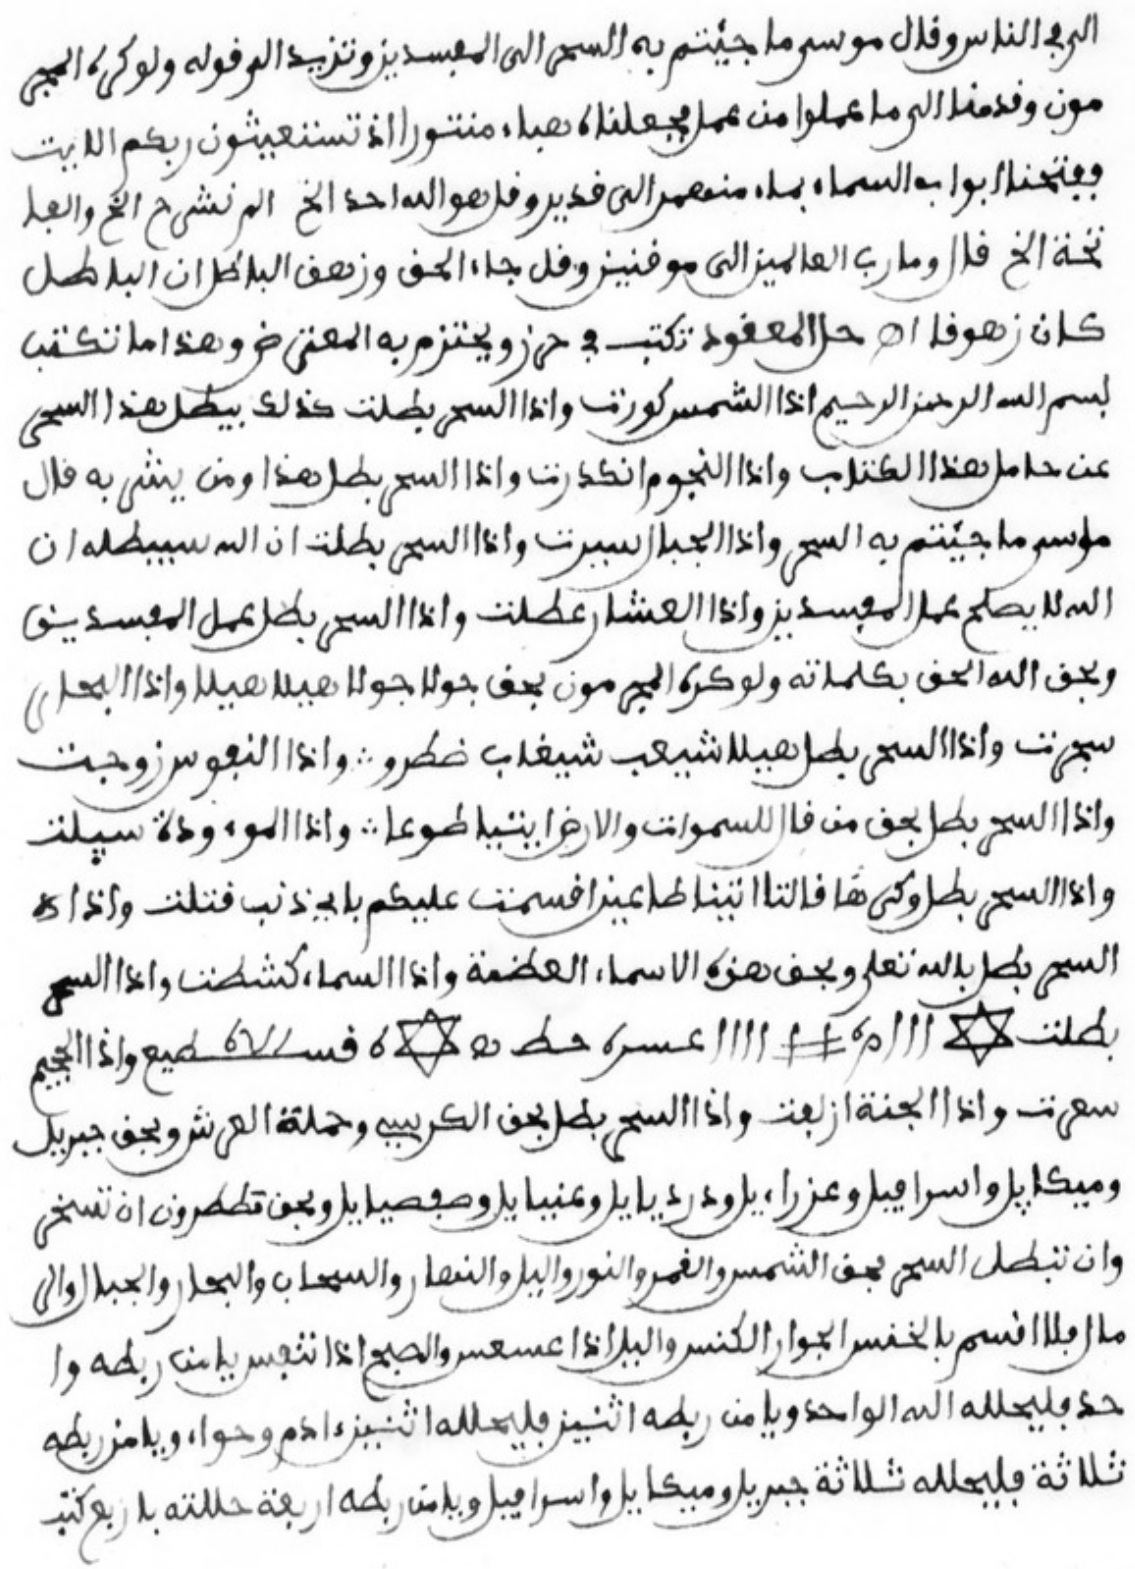 الى في الناس وقال موسى ما جيئتم به السحر الى المفسدين وتزيد الو قوله ولو كره المجر
مون وقدمنا الى ما عملوا من عمل فجعلناه هباء منتورا اذ تستغيثون ربكم الايت
ففتحنا ابواب السماء بماء منهمر الى قدير وقل هو الله احد الخ الم نشرح الخ والفا
تحة الخ قال وما رب العالمين الى موقنين وقل جاء الحق وزهق الباطل ان الباطل
كان زهوقا اهـ حل المعقود تكتب في حرز ويحتزم به المعترض وهذا ما تكتب
بسم الله الرحمن الرحيم اذا الشمس كورت واذا السحر بطلت كذلك يبطل هذا السحر
عن حامل هذا الكتاب واذا النجوم انكدرت واذا السحر بطل هذا ومن يشر به قال
موسى ما جيئتم به السحر واذا الجبال سيرت واذا السحر بطلت ان الله سيبطله ان
الله لا يصلح عمل المفسدين واذا العشار عطلت واذا السحر بطل عمل المفسدين
ويحق الله الحق بكلماته ولو كره المجرمون بحق جولا جولا هيلا هيلا واذا البحار
سجرت واذا السحر بطل هيلا شيعب شيغاب خطرو واذا النفوس زوجت
واذا السحر بطل بحق من قال للسموات والارض ايتيا طوعا واذا الموءودة سيلت
واذا السحر بطل وكرها قالتا اتينا طاعين اقسمت عليكم باي ذنب قتلت واذا
السحر بطل بالله تعلى وبحق هذه الاسماء العظمة واذا السماء كشطت واذا السحر
بطلت ااا ااااا واذا الجحيم
سعرت واذا الجنة ازلفت واذا السحر بطل بحق الكرسي وحملة العرش وبحق جبريل
وميكاييل واسرافيل وعزراءيل ودرديايل وعنيايل وصفصيايل وبحق قططرون ان تسخر
وان تبطل السحر بحق الشمس والقمر والنور واليل والنهار والسحاب والبحار والجبال والر
مال فلا اقسم بالخنس الجوار الكنس واليل اذا عسعس والصبح اذا تنفس يا من ربطه وا
حد فليحلله الله الواحد ويا من ربطه اثنين فليحلله اثنين ءادم وحواء ويا من ربطه
ثلاثة فليحلله ثلاثة جبريل وميكايل واسرافيل ويا من ربطه اربعة حللته باربع كتب